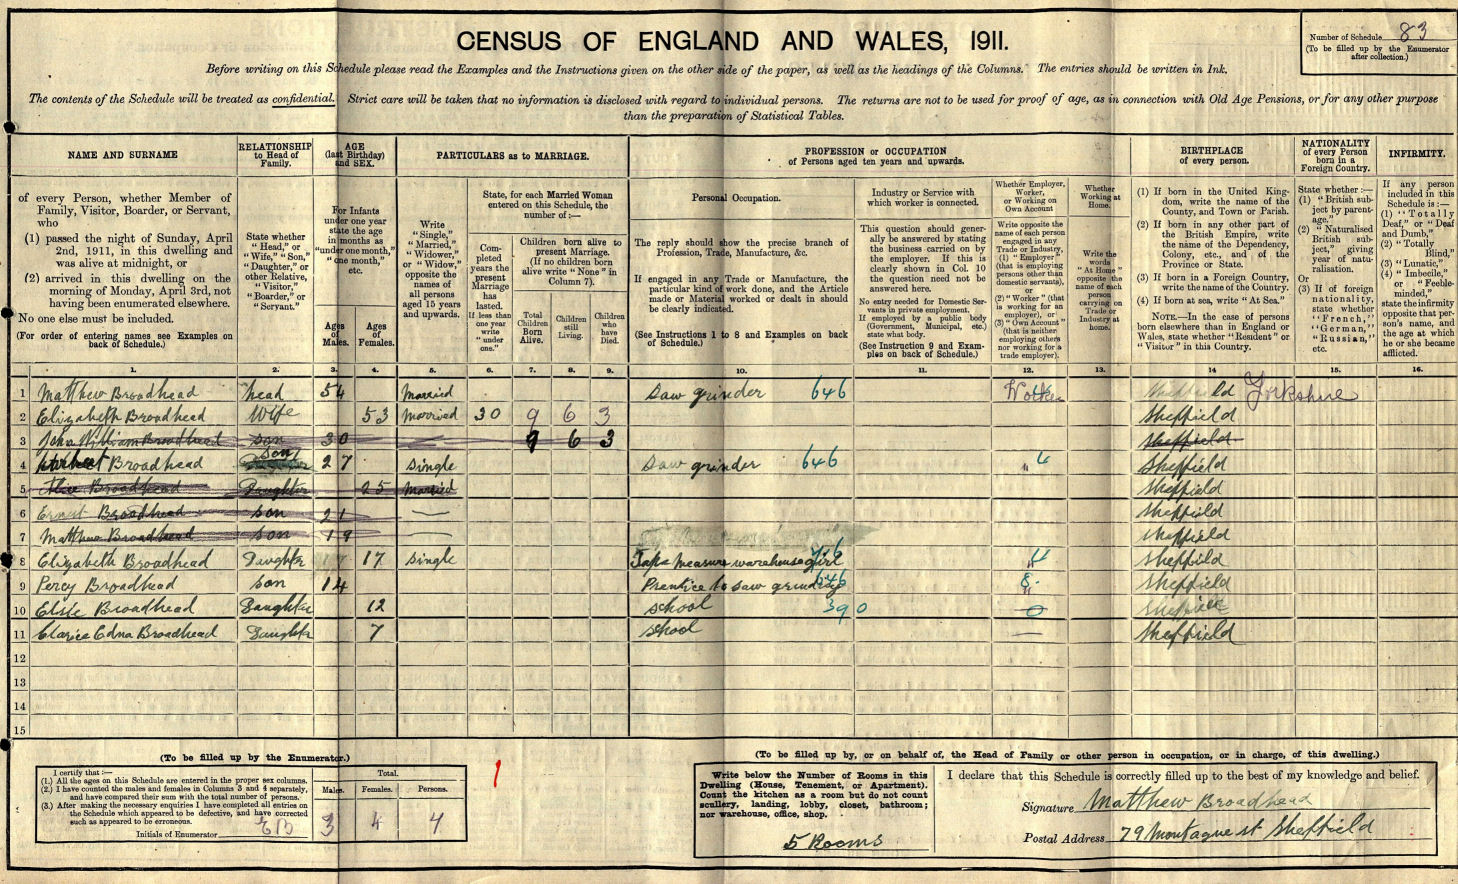 CENSUS OF ENGLAND AND WALES, 1911.
Number of Schedule 83
(To be filled up by the Enumerator after collection.)
Before writing on this Schedule please read the Examples and the Instructions given on the other side of the paper, as well as the headings of the Columns. The entries should be written in Ink.
The contents of the Schedule will be treated as confidential. Strict care will be taken that no information is disclosed with regard to individual persons. The returns are not to be used for proof of age, as in connection with Old Age Pensions, or for any other purpose
than the preparation of Statistical Tables.
NAME AND SURNAME
of every Person, whether Member of Family, Visitor, Boarder, or Servant, who
(1) passed the night of Sunday, April 2nd, 1911, in this dwelling and was alive at midnight, or
(2) arrived in this dwelling on the morning of Monday, April 3rd, not having been enumerated elsewhere.
No one else must be included.
(For order of entering names see Examples on back of Schedule.)
RELATIONSHIP to Head of Family.
State whether "Head," or "Wife," "Son," "Daughter," or other Relative, "Visitor," "Boarder," or "Servant."
AGE (last Birthday) and SEX.
For Infants under one year state the age in months as "under one month," "one month," etc.
Ages of Males.
Ages of Females.
PARTICULARS as to MARRIAGE.
Write "Single," "Married," "Widower," or "Widow," opposite the names of all persons aged 15 years and upwards.
State, for each Married Woman entered on this Schedule, the number of:—
Completed years the present Marriage has lasted. If less than one year write "under one."
Children born alive to present Marriage. (If no children born alive write "None" in Column 7).
Total Children Born Alive.
Children still Living.
Children who have Died.
PROFESSION or OCCUPATION
of Persons aged ten years and upwards.
Personal Occupation.
The reply should show the precise branch of Profession, Trade, Manufacture, &c.
If engaged in any Trade or Manufacture, the particular kind of work done, and the Article made or Material worked or dealt in should be clearly indicated.
(See Instructions 1 to 8 and Examples on back of Schedule.)
Industry or Service with which worker is connected.
This question should generally be answered by stating the business carried on by the employer. If this is clearly shown in Col. 10 the question need not be answered here.
No entry needed for Domestic Servants in private employment. If employed by a public body (Government, Municipal, etc.) state what body.
(See Instruction 9 and Examples on back of Schedule.)
Whether Employer, Worker, or Working on Own Account
Write opposite the name of each person engaged in any Trade or Industry, (1) "Employer" (that is employing persons other than domestic servants), or (2) "Worker" (that is working for an employer), or (3) "Own Account" (that is neither employing others nor working for a trade employer).
Whether Working at Home.
Write the words "At Home" opposite the name of each person carrying on Trade or Industry at home.
BIRTHPLACE of every person.
(1) If born in the United Kingdom, write the name of the County, and Town or Parish.
(2) If born in any other part of the British Empire, write the name of the Dependency, Colony, etc., and of the Province or State.
(3) If born in a Foreign Country, write the name of the Country.
(4) If born at sea, write "At Sea."
NOTE.—In the case of persons born elsewhere than in England or Wales, state whether "Resident" or "Visitor" in this Country.
NATIONALITY of every Person born in a Foreign Country.
State whether:—
(1) "British subject by parentage."
(2) "Naturalised British subject," giving year of naturalisation.
Or
(3) If of foreign nationality, state whether "French," "German," "Russian," etc.
INFIRMITY.
If any person included in this Schedule is:—
(1) "Totally Deaf," or "Deaf and Dumb,"
(2) "Totally Blind,"
(3) "Lunatic,"
(4) "Imbecile," or "Feeble-minded,"
state the infirmity opposite that person's name, and the age at which he or she became afflicted.
1. 2. 3. 4. 5. 6. 7. 8. 9. 10. 11. 12. 13. 14 15. 16.
1 Matthew Broadhead head 54 Married Saw grinder 646 Worker Sheffield Yorkshire
2 Elizabeth Broadhead Wife 53 Married 30 9 6 3 Sheffield
3 John William Broadhead son 30 — 9 6 3 Sheffield
4 Broadhead son 27 single Saw grinder 646 " Sheffield
5 Alice Broadhead Daughter 25 Married Sheffield
6 Ernest Broadhead son 21 — Sheffield
7 Matthew Broadhead son 19 — Sheffield
8 Elizabeth Broadhead Daughter 17 single Tape measure warehouse girl " Sheffield
9 Percy Broadhead son 14 Prentice to saw grinding 646 " Sheffield
10 Elsie Broadhead Daughter 12 school 390 Sheffield
11 Clarice Edna Broadhead Daughter 7 school — Sheffield
12
13
14
15
(To be filled up by the Enumerator.)
I certify that:—
(1.) All the ages on this Schedule are entered in the proper sex columns.
(2.) I have counted the males and females in Columns 3 and 4 separately, and have compared their sum with the total number of persons.
(3.) After making the necessary enquiries I have completed all entries on the Schedule which appeared to be defective, and have corrected such as appeared to be erroneous.
Initials of Enumerator EB
Total.
Males. Females. Persons.
3 4 7
1
(To be filled up by, or on behalf of, the Head of Family or other person in occupation, or in charge, of this dwelling.)
Write below the Number of Rooms in this Dwelling (House, Tenement, or Apartment). Count the kitchen as a room but do not count scullery, landing, lobby, closet, bathroom; nor warehouse, office, shop.
5 Rooms
I declare that this Schedule is correctly filled up to the best of my knowledge and belief.
Signature Matthew Broadhead
Postal Address 79 Montague st Sheffield